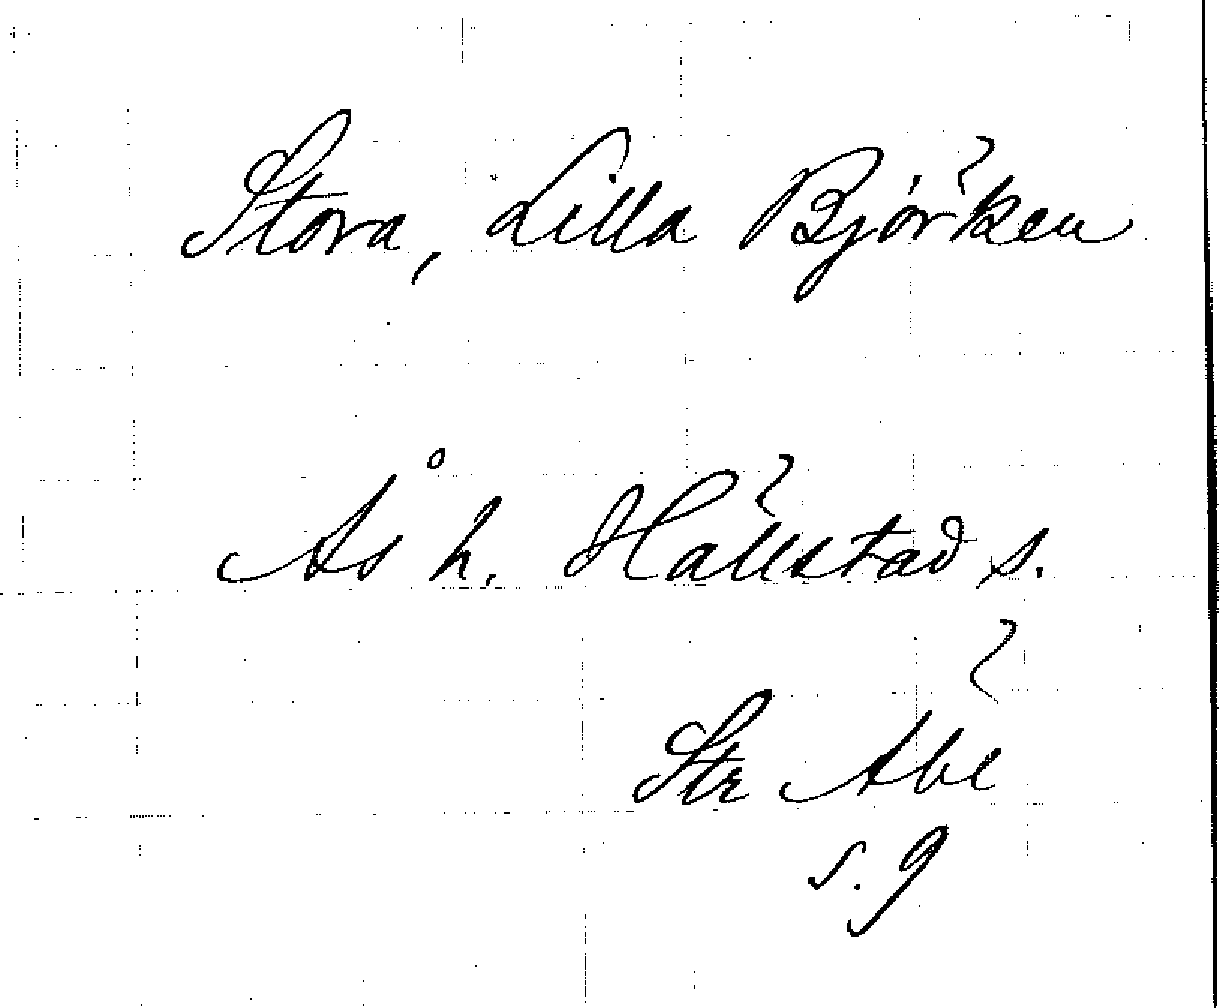 Stora, Lilla Björken
Ås h. Hällstad s.
Str Äbl
s. 9